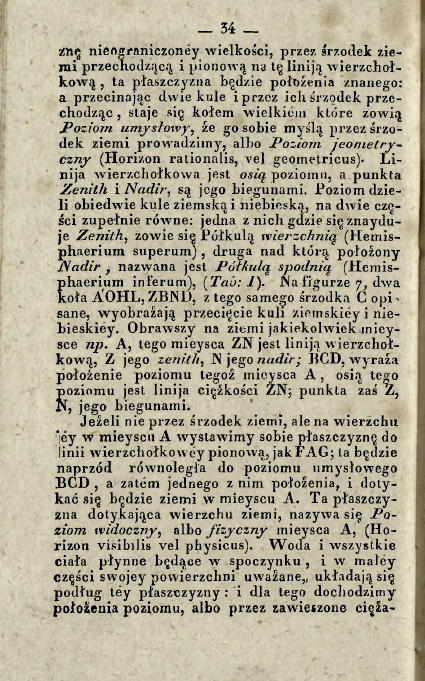 — 34 —
znę nieograniczoney wielkości, przez śrzodek zie-
mi przechodzącą i pionową na tę liniją wierzchoł-
kową, ta płaszczyzna będzie położenia znanego:
a przecinając dwie kule i przez ich śrzodek prze-
chodząc, staje się kołem wielkiém które zowią
Poziom umysłowy, że go sobie myślą przez śrzo-
dek ziemi prowadzimy, albo Poziom jeometry-
czny (Horizon rationalis, vel geometricus). Li-
nija wierzchołkowa jest osią poziomu, a punkta
Zenith i Nadir, są jego biegunami. Poziom dzie-
li obiedwie kule ziemską i niebieską, na dwie czę-
ści zupełnie równe: jedna z nich gdzie się znaydu-
je Zenith, zowie się Półkulą wierzchnią (Hemis-
phaerium superum), druga nad którą położony
Nadir, nazwana jest Półkulą spodnią (Hemis-
phaerium inferum), (Tab: I). Na figurze 7, dwa
koła AOHL, ZBND, z tego samego śrzodka C opi-
sane, wyobrażają przecięcie kuli ziemskiéy i nie-
bieskiéy. Obrawszy na ziemi jakiekolwiek miey-
sce np. A, tego mieysca ZN jest liniją wierzchoł-
kową, Z jego zenith, N jego nadir; BCD, wyraża
położenie poziomu tegoż mieysca A, osią tego
poziomu jest linija ciężkości ZN; punkta zaś Z,
N, jego biegunami.
Jeżeli nie przez śrzodek ziemi, ale na wierzchu
jéy w mieyscu A wystawimy sobie płaszczyznę do
linii wierzchołkowéy pionową, jak FAG; ta będzie
naprzód równoległa do poziomu umysłowego
BCD, a zatém jednego z nim położenia, i doty-
kać się będzie ziemi w mieyscu A. Ta płaszczy-
zna dotykająca wierzchu ziemi, nazywa się Po-
ziom widoczny, albo fizyczny mieysca A, (Ho-
rizon visibilis vel physicus). Woda i wszystkie
ciała płynne będące w spoczynku, i w małéy
części swojey powierzchni uważane, układają się
podług téy płaszczyzny: i dla tego dochodzimy
położenia poziomu, albo przez zawieszone cięża-